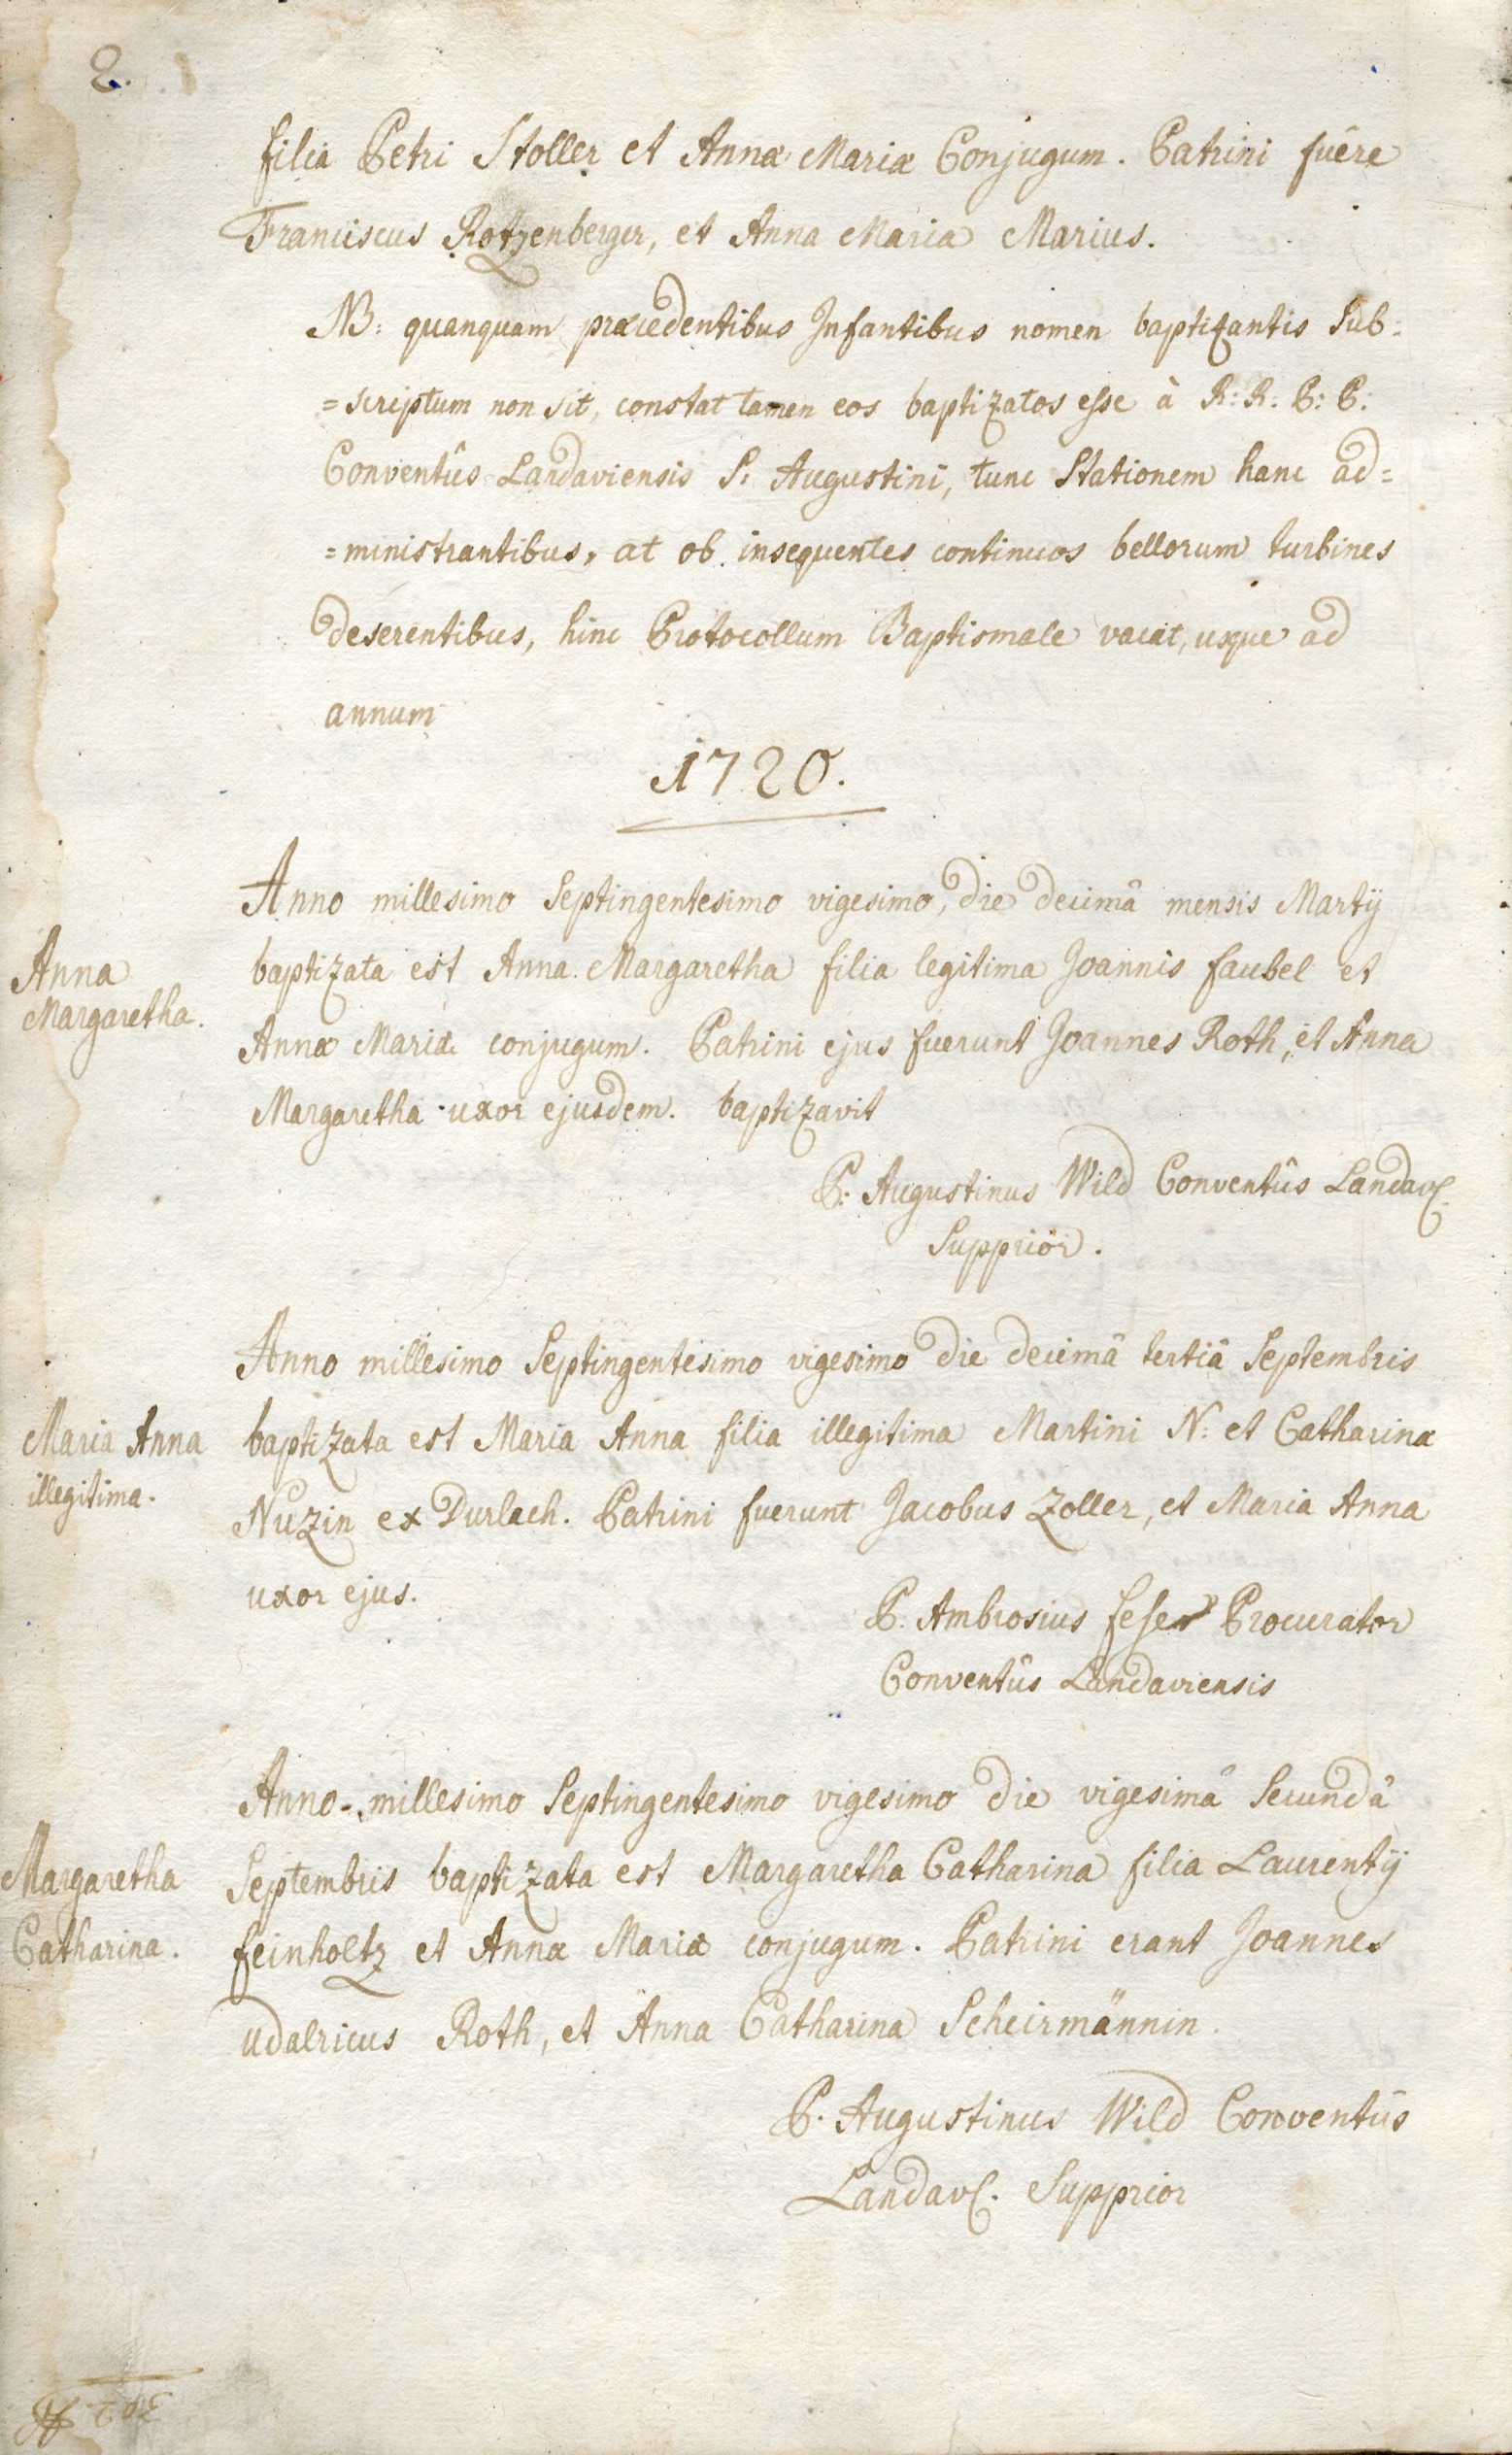 2.
filia Petri Stoller et Annæ Mariæ Conjugum. Patrini fuêre
Franciscus Rotzenberger, et Anna Maria Marius.
NB: quanquam præcedentibus Infantibus nomen baptizantis Sub=
=scriptum non sit, constat tamen eos baptizatos esse à R: R: P: P:
Conventûs Landaviensis S: Augustini, tunc Stationem hanc ad=
=ministrantibus, at ob insequentes continuos bellorum turbines
deserentibus, hinc Protocollum Baptismale vacat, usque ad
annum
1720.
Anno millesimo Septingentesimo vigesimo, die decimâ mensis Martij
Anna
Margaretha.
baptizata est Anna Margaretha filia legitima Joannis faubel et
Annæ Mariæ conjugum. Patrini ejus fuerunt Joannes Roth, et Anna
Margaretha uxor ejusdem. baptizavit
P: Augustinus Wild Conventûs Landav.
Supprior.
Anno millesimo Septingentesimo vigesimo die decimâ tertiâ Septembris
Maria Anna
illegitima.
baptizata est Maria Anna filia illegitima Martini N: et Catharinæ
Nuzin ex Durlach. Patrini fuerunt Jacobus Zoller, et Maria Anna
uxor ejus.
P. Ambrosius feser Procurator
Conventûs Landaviensis
Anno millesimo Septingentesimo vigesimo die vigesimâ Secundâ
Margaretha
Catharina.
Septembris baptizata est Margaretha Catharina filia Laurentij
feinholtz et Annæ Mariæ conjugum. Patrini erant Joannes
Udalricus Roth, et Anna Catharina Scheirmännin.
P. Augustinus Wild Conventûs
Landav. Supprior